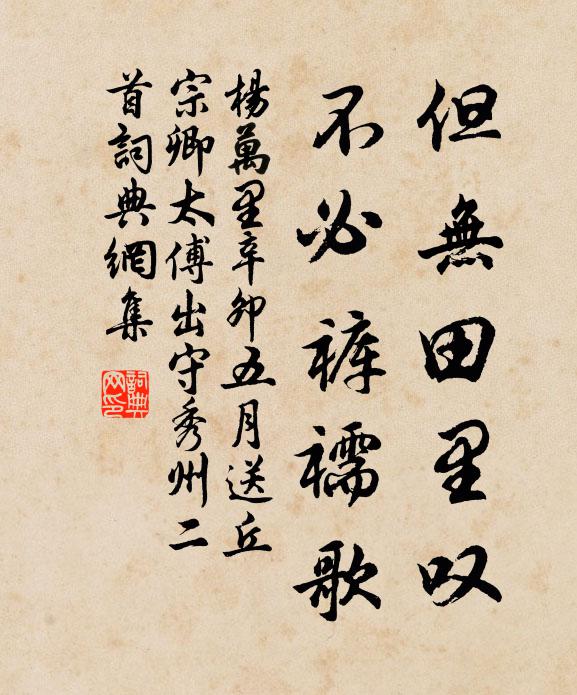 但無田里叹
不必裤襦歌
楊萬里辛卯五月送丘
宗卿太傅出守秀州二
首詞典網集
詞典网印